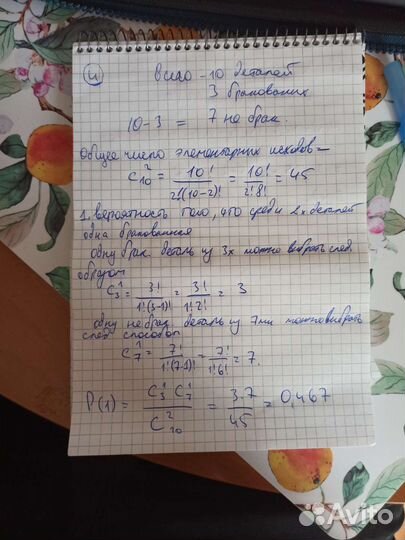 4
Всего - 10 деталей
3 бракованных
10-3 = 7 не брак.
Общее число элементарных исходов =
C₁₀² = 10!/2!(10-2)! = 10!/2!8! = 45
1. вероятность того, что среди 2х деталей
одна бракованная
одну брак. деталь из 3х можно выбрать след
образом
C₃¹ = 3!/1!(3-1)! = 3!/1!2! = 3
одну не брак. деталь из 7ми можно выбрать
след способом
C₇¹ = 7!/1!(7-1)! = 7!/1!6! = 7.
P(1) = C₃¹ C₇¹/C₁₀² = 3·7/45 = 0,467
Avito